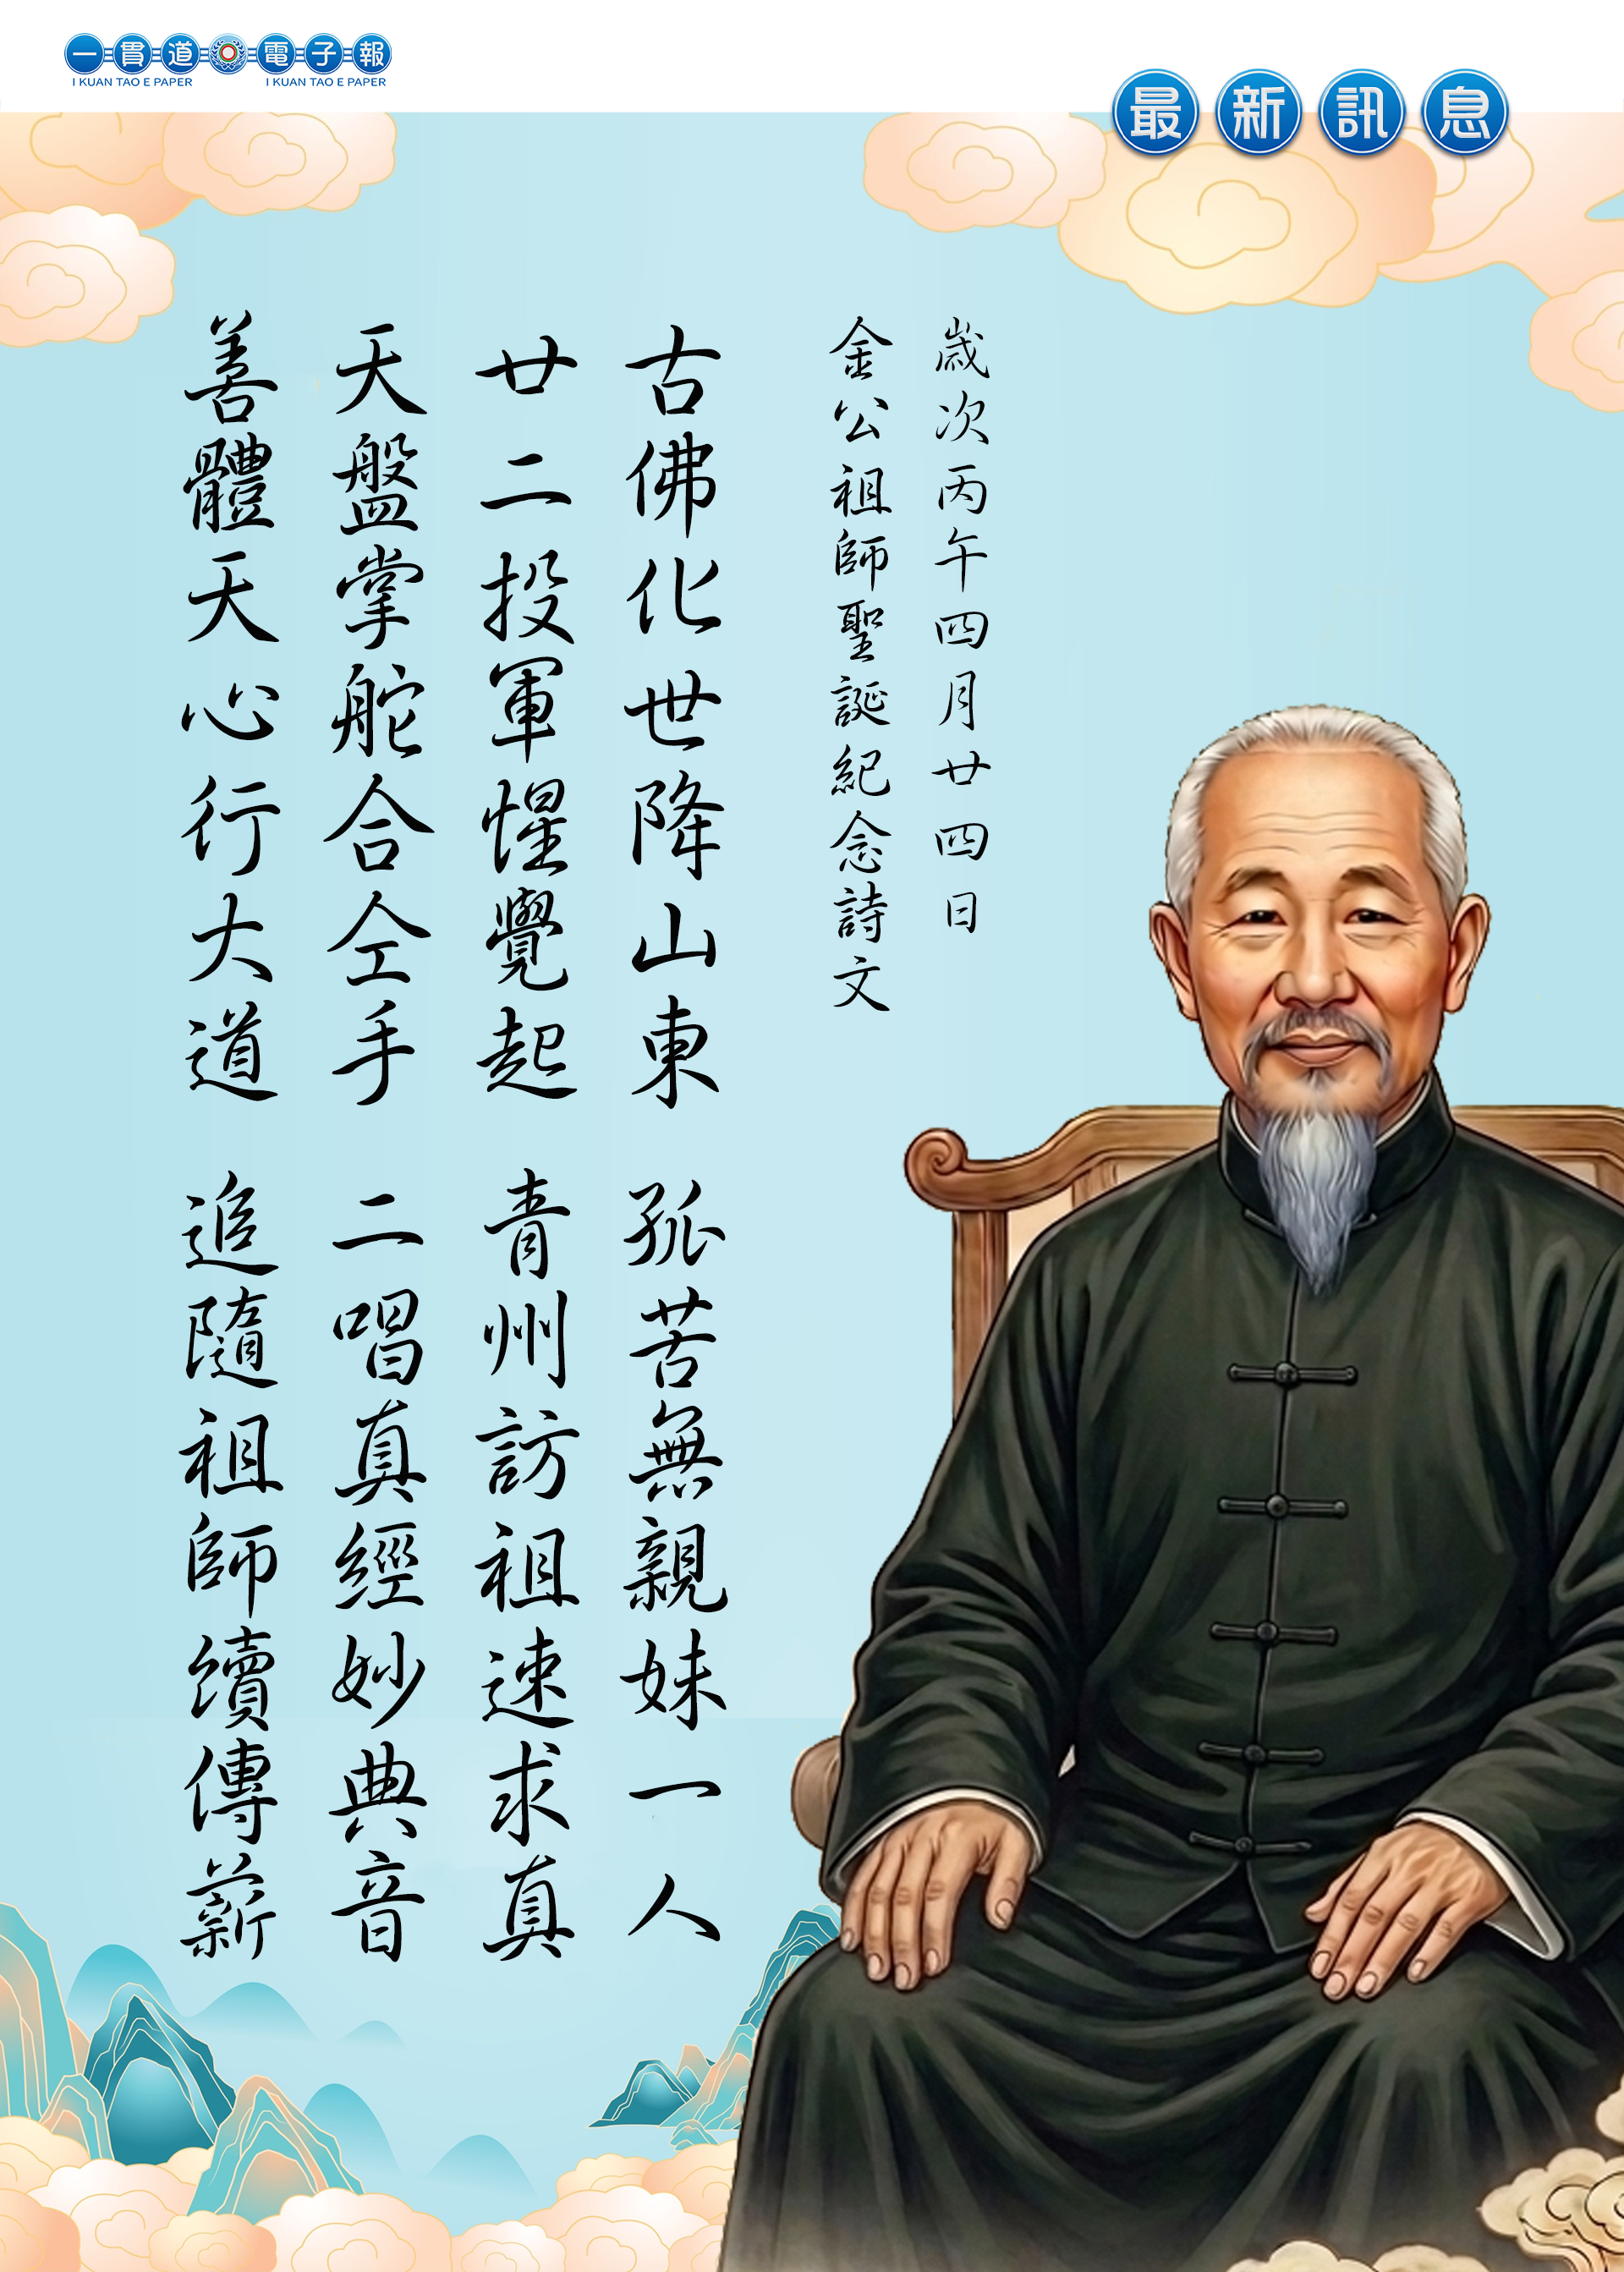 一貫道電子報
I KUAN TAO E PAPER I KUAN TAO E PAPER
最新訊息
歲次丙午四月廿四日
金公祖師聖誕紀念詩文
古佛化世降山東 孤苦無親妹一人
廿二投軍惺覺起 青州訪祖速求真
天盤掌舵合仝手 二唱真經妙典音
善體天心行大道 追隨祖師續傳薪